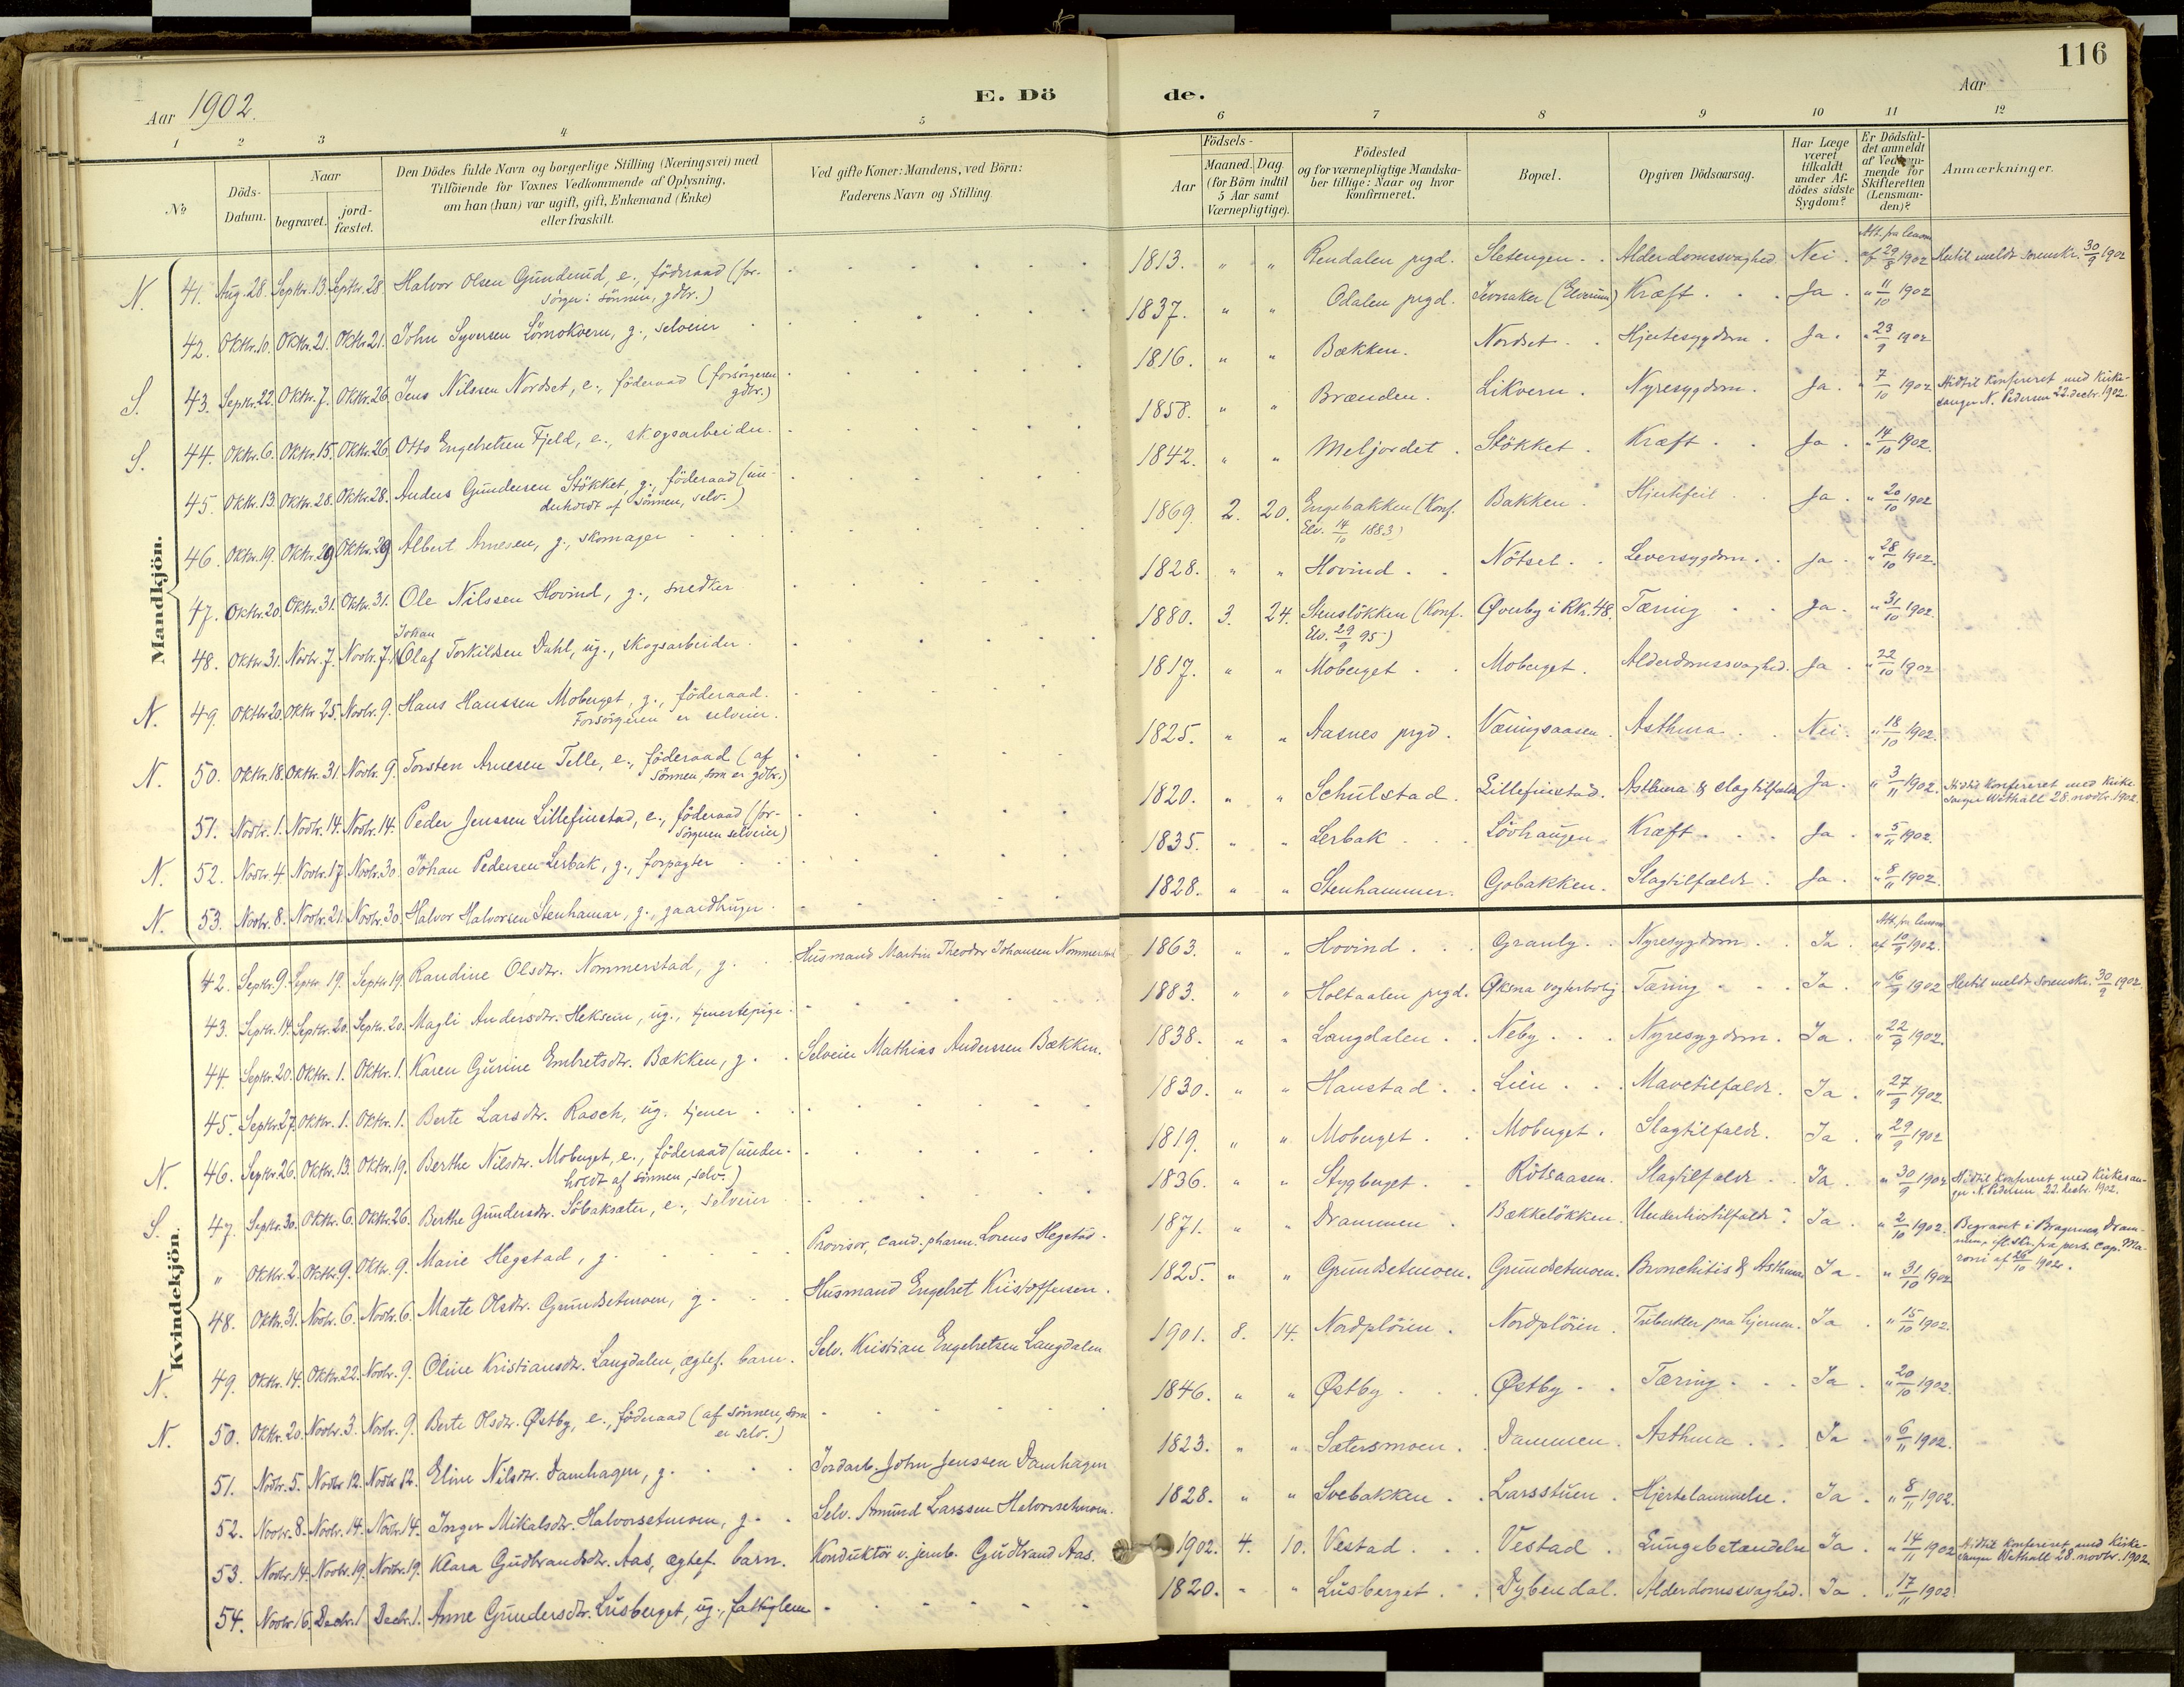 116
Aar 1902.
E. Dö de.
Aar
1 2 3 4 5 6 7 8 9 10 11 12
No
Döds-Datum.
Naar
begravet.
jord-fæstet.
Den Dödes fulde Navn og borgerlige Stilling (Næringsvei) med
Tilföiende for Voxnes Vedkommende af Oplysning,
om han (hun) var ugift, gift, Enkemand (Enke)
eller fraskilt.
Ved gifte Koner: Mandens, ved Börn:
Faderens Navn og Stilling.
Födsels-
Aar
Maaned. Dag.
(for Börn indtil
5 Aar samt
Værnepligtige).
Födested
og for værnepligtige Mandska-
ber tillige: Naar og hvor
Konfirmeret.
Bopæl.
Opgiven Dödsaarsag.
Har Læge
været
tilkaldt
under Af-
dödes sidste
Sygdom?
Er Dödsfal-
det anmeldt
af Vedkom-
mende for
Skifteretten
(Lensman-
den)?
Anmærkninger.
Mandkjön.
N. 41. Aug. 28. Septbr. 13. Septbr. 28. Halvor Olsen Gunderud, e., föderaad (for-
sörger: sönnen, gdbr.) 1813. " " Rendalen prgd. Sletengen. Alderdomssvaghed. Nei. Att. fra lensm. af 29/8 1902 Hertil meldt sorenskr. 30/9 1902
42. Oktbr. 10. Oktbr. 21. Oktbr. 21. John Syversen Lömokvern, g., selveier 1837. " " Odalen prgd. (Elverum) Kræft. Ja. " 11/10 1902
S. 43. Septbr. 22. Oktbr. 7. Oktbr. 26. Jens Nilssen Nordset, e., föderaad (forsörgeren
gdbr.) 1816. " " Bækken. Nordset. Hjertesygdom. Ja. " 23/9 1902
S. 44. Oktbr. 6. Oktbr. 15. Oktbr. 26. Otto Engebretsen Fjeld, e., skogsarbeider. 1858. " " Brænden. Likvern. Nyresygdom. Ja. " 7/10 1902 Hidtil konfereret med kirke-
sanger N. Pedersen 22. decbr. 1902.
45. Oktbr. 13. Oktbr. 28. Oktbr. 28. Anders Gundersen Stökket, g., föderaad (un-
derholdt af sönnen, selv.) 1842. " " Meljordet. Stökket. Kræft. Ja. " 14/10 1902.
46. Oktbr. 19. Oktbr. 29 Oktbr. 29 Albert Arnesen, g., skomager 1869. 2. 20. Engebakken (Konf.
Elv. 14/10 1883) Bakken. Hjertefeil. Ja. " 20/10 1902
47. Oktbr. 20. Oktbr. 31. Oktbr. 31. Ole Nilssen Hovind, g., snedker 1828. " " Hovind. Nötsel. Leversygdom. Ja. " 28/10 1902.
Johan
48. Oktbr. 31. Novbr. 7. Novbr. 7. Olaf Torkildsen Dahl, ug., skogsarbeider. 1880. 3. 24. Stenslökken (Konf.
Elv. 29/9 95) Øverby i Rk. 48. Tæring Ja. " 31/10 1902.
N. 49. Oktbr. 20. Oktbr. 25. Novbr. 9. Hans Hanssen Moberget, g., föderaad.
Forsörgeren er selveier. 1817. " " Moberget. Moberget. Alderdomssvaghed. Ja. " 22/10 1902
N. 50. Oktbr. 18. Oktbr. 31. Novbr. 9. Torsten Arnesen Telle, e., föderaad (af
sönnen, som er gdbr.) 1825. " " Aasnes prgd. Væringsaasen. Asthma. Nei. " 18/10 1902.
51. Novbr. 1. Novbr. 14. Novbr. 14. Peder Jenssen Lillefinstad, e., föderaad (for-
sörgeren selveier) 1820. " " Schulstad. Lillefinstad. Asthma & slagtilfælde Ja. " 3/11 1902. Hidtil konfereret med kirke-
sanger Wethall 28. novbr. 1902.
N. 52. Novbr. 4. Novbr. 17. Novbr. 30. Johan Pedersen Lerbak, g., forpagter 1835. " " Lerbak Lövhaugen. Kræft. Ja. " 5/11 1902.
N. 53. Novbr. 8. Novbr. 21. Novbr. 30. Halvor Halvorsen Stenhamar, g., gaardbruger. 1828. " " Stenhammer. Gobakken. Slagtilfælde. Ja. " 8/11 1902.
Kvindekjön.
42. Septbr. 9. Septbr. 19. Septbr. 19. Randine Olsdtr. Nommerstad, g. Husmand Martin Theodor Johansen Nommerstad 1863. " " Hovind. Granly. Nyresygdom. Ja. Att. fra lensm. af 10/9 1902.
43. Septbr. 14. Septbr. 20. Septbr. 20. Magli Andersdtr. Heksem, ug., tjenestepige. 1883. " " Holtaalen prgd. Øksna vogterbolig Tæring Ja. " 16/9 1902 Hertil meldt sorenskr. 30/9 1902.
44. Septbr. 20. Oktbr. 1. Oktbr. 1. Karen Gurine Embretsdtr. Bækken, g. Selveier Mathias Anderssen Bækken. 1838. " " Langdalen. Neby. Nyresygdom. Ja. " 22/9 1902.
45. Septbr. 27. Oktbr. 1. Oktbr. 1. Berte Larsdtr. Rasch, ug. tjener. 1830. " " Hanstad. Lien. Mavetilfælde. Ja. " 27/9 1902.
N. 46. Septbr. 26. Oktbr. 13. Oktbr. 19. Berthe Nilsdtr. Moberget, e., föderaad (under-
holdt af sönnen, selv.) 1819. " " Moberget. Moberget. Slagtilfælde. Ja. " 29/9 1902
S. 47. Septbr. 30. Oktbr. 6. Oktbr. 26. Berthe Gundersdtr. Söbaksæter, e., selveier 1836. " " Stygberget. Rötsaasen. Slagtilfælde. Ja. " 30/9 1902 Hidtil konfereret med kirkesan-
ger N. Pedersen 22. decbr. 1902.
" Oktbr. 2. Oktbr. 9. Oktbr. 9. Marie Hegstad, g. Provisor, cand. pharm. Lorens Hegstad. 1871. " " Drammen. Bækkelökken. Underlivstilfælde. Ja. " 2/10 1902. Begravet i Bragernes, Dram-
men, ifl. skr. fra pers. cap. Ma-
roni af 26/10 1902.
48. Oktbr. 31. Novbr. 6. Novbr. 6. Marte Olsdtr. Grundsetmoen, g. Husmand Engebret Kristoffersen. 1825. " " Grundsetmoen. Grundsetmoen. Bronchitis & Asthma Ja. " 31/10 1902
N. 49. Oktbr. 14. Oktbr. 22. Novbr. 9. Oline Kristiansdtr. Langdalen, ægtef. barn. Selv. Kristian Engebretsen Langdalen 1901. 8. 14. Nordplöien. Nordplöien. Tuberkler paa hjernen. Ja. " 15/10 1902.
N. 50. Oktbr. 20. Novbr. 3. Novbr. 9. Berte Olsdtr. Østby, e., föderaad (af sönnen, som
er selv.) 1846. " " Østby. Østby. Tæring. Ja. " 20/10 1902.
51. Novbr. 5. Novbr. 12. Novbr. 12. Eline Nilsdtr. Damhagen, g. Jordarb. John Jenssen Damhagen 1823. " " Sætersmoen. Dammen. Asthma. Ja. " 6/11 1902.
52. Novbr. 8. Novbr. 14. Novbr. 14. Inger Mikalsdtr. Halvorsetmoen, g. Selv. Amund Larssen Halvorsetmoen. 1828. " " Svebakken. Larsstuen. Hjertelammelse. Ja. " 8/11 1902.
53. Novbr. 14. Novbr. 19. Novbr. 19. Klara Gudbrandsdtr. Aas, ægtef. barn. Konduktör v. jernb. Gudbrand Aas. 1902. 4. 10. Vestad. Vestad. Lungebetændelse Ja. " 14/11 1902 Hidtil konfereret med kirke-
sanger Wethall 28. novbr. 1902.
54. Novbr. 16. Decbr. 1. Decbr. 1. Anne Gundersdtr. Lusberget, ug., fattiglem 1820. " " Lusberget. Dybendal. Alderdomssvaghed. Ja. " 17/11 1902.